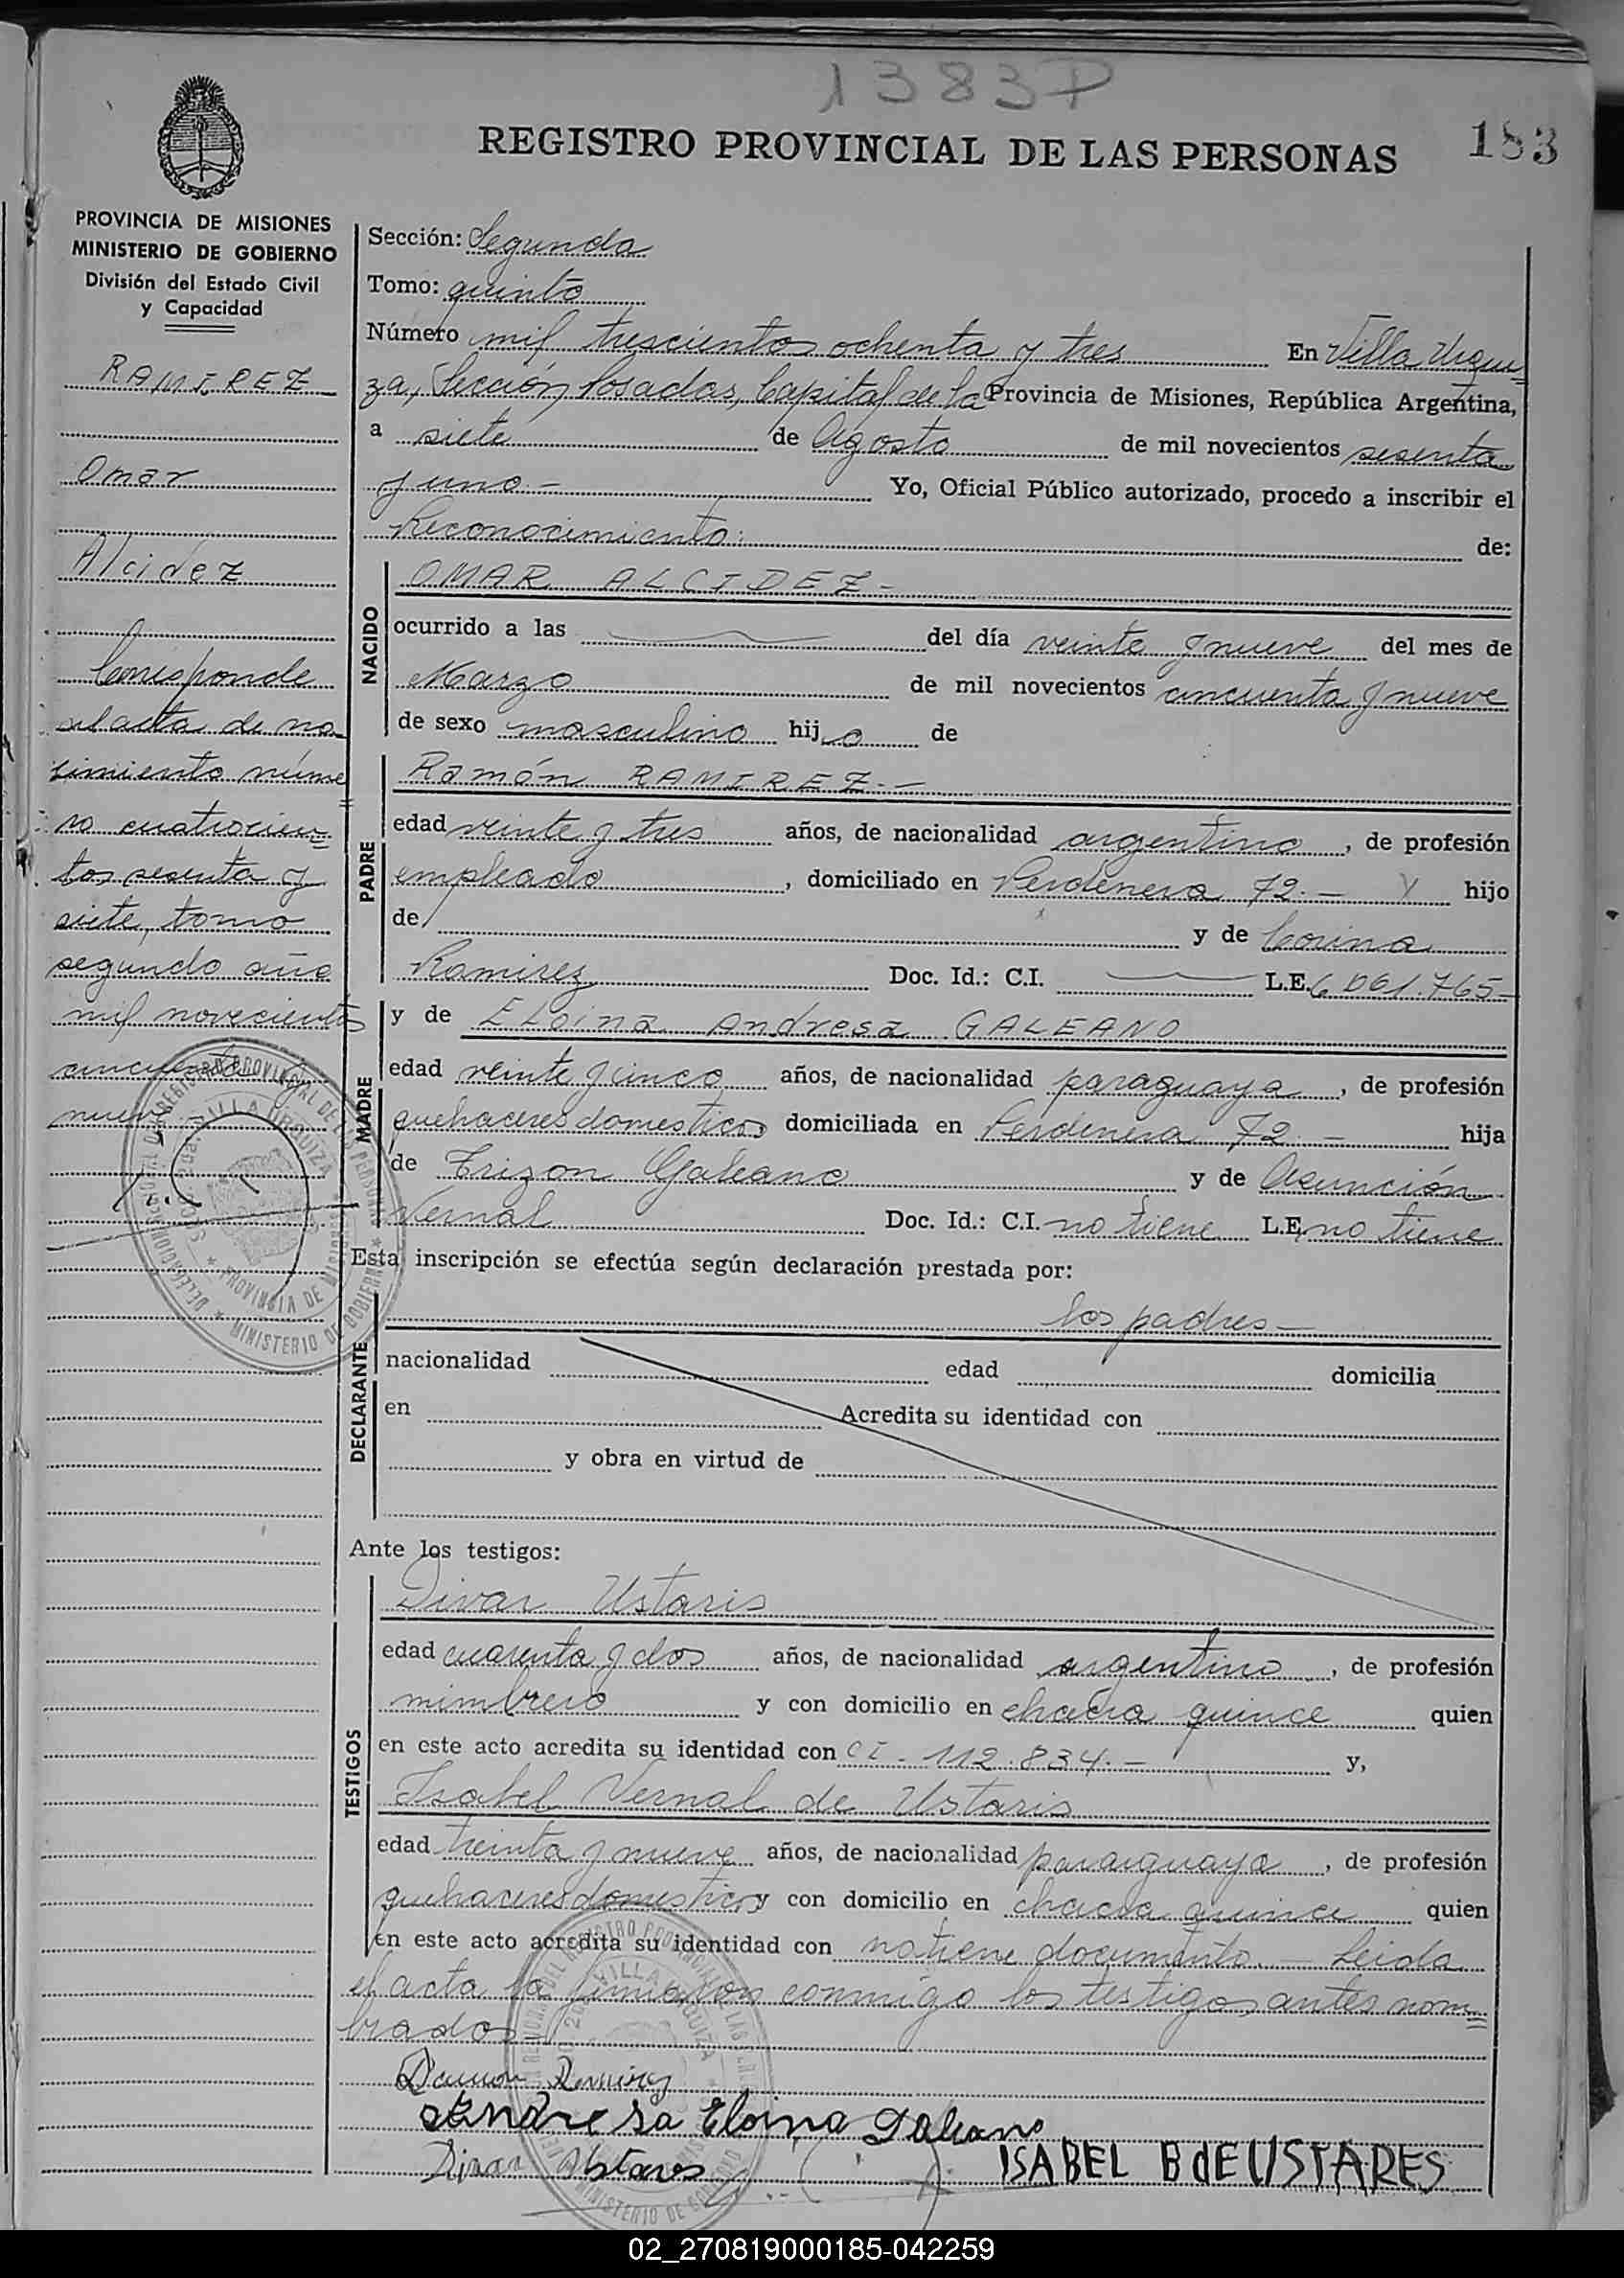 1383P
REGISTRO PROVINCIAL DE LAS PERSONAS 183
PROVINCIA DE MISIONES
MINISTERIO DE GOBIERNO
División del Estado Civil
y Capacidad
RAMIREZ
Omar
Alcidez
Corresponde
al acta de na
cimiento núme
ro cuatrocien
tos sesenta y
siete, tomo
segundo año
mil novecientos
cincuenta y
nueve
Sección: Segunda
Tomo: quinto
Número mil trescientos ochenta y tres En Villa Urqui
za, Sección Posadas, Capital de la Provincia de Misiones, República Argentina,
a siete de Agosto de mil novecientos sesenta
y uno.- Yo, Oficial Público autorizado, procedo a inscribir el
Reconocimiento: de:
NACIDO
OMAR ALCIDEZ-
ocurrido a las del día veinte y nueve del mes de
Marzo de mil novecientos cincuenta y nueve
de sexo masculino hijo de
PADRE
Ramón RAMIREZ.-
edad veinte y tres años, de nacionalidad argentino, de profesión
empleado, domiciliado en Perdenera 72.- hijo
de y de Corina
Ramirez Doc. Id.: C.I. L.E. 6.061.765-
MADRE
y de Eloina Andresa GALEANO
edad veinte y cinco años, de nacionalidad paraguaya, de profesión
quehaceres domesticos domiciliada en Perdenera 72.- hija
de Trizon Galeano y de Asunción
Vernal Doc. Id.: C.I. no tiene L.E. no tiene
Esta inscripción se efectúa según declaración prestada por:
DECLARANTE
los padres-
nacionalidad edad domicilia
en Acredita su identidad con
y obra en virtud de
Ante los testigos:
TESTIGOS
Divar Ustaris
edad cuarenta y dos años, de nacionalidad argentino, de profesión
mimbrero y con domicilio en chacra quince quien
en este acto acredita su identidad con CI-112.834.- y,
Isabel Vernal de Ustaris
edad treinta y nueve años, de nacionalidad paraguaya, de profesión
quehaceres domesticos y con domicilio en chacra quince quien
en este acto acredita su identidad con no tiene documento.- Leida
el acta la firmaron conmigo los testigos antes nom
brados-
Ramon Ramirez
Andresa Eloina Galeano
Divar Ustares
ISABEL B dE USTARES
02_270819000185-042259